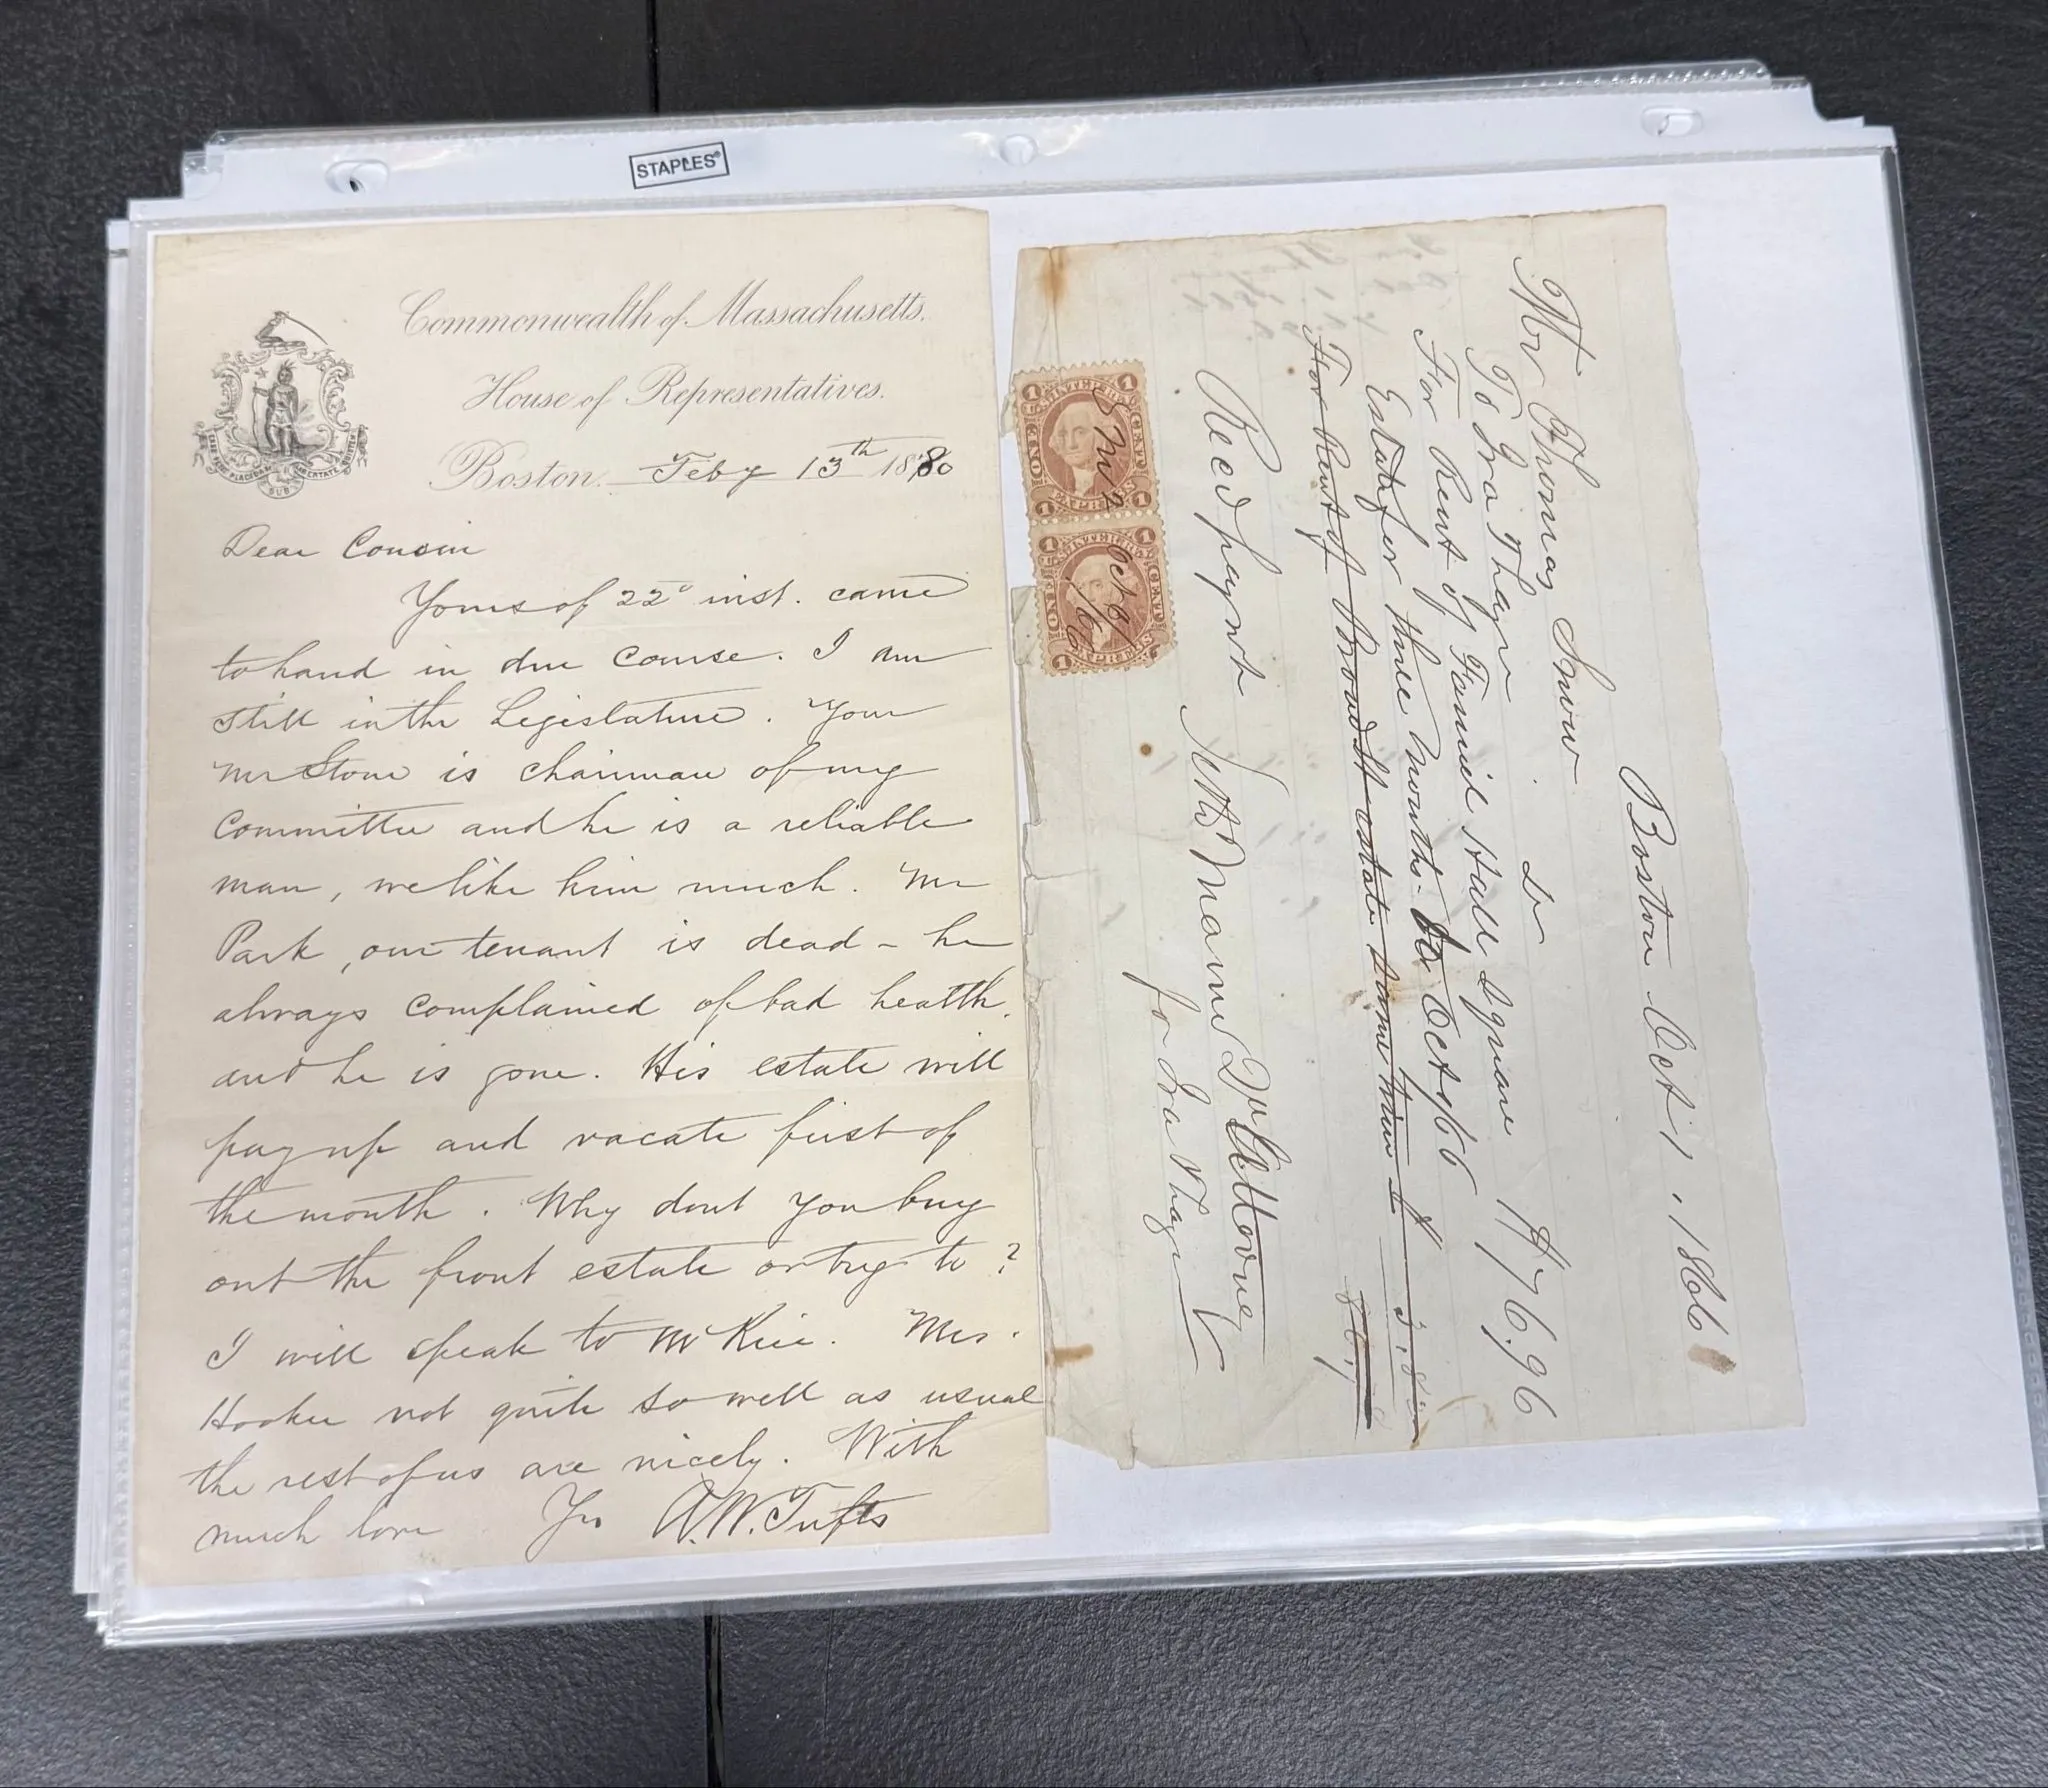 STAPLES
Commonwealth of Massachusetts.
House of Representatives.
Boston. Feby 13th 1880
ENSE PETIT PLACIDAM SUB LIBERTATE QUIETEM
Dear Cousin
Yours of 22d inst. came
to hand in due course. I am
still in the Legislature. Your
Mr Stone is chairman of my
committee and he is a reliable
man, we like him much. Mr
Park, our tenant is dead - he
always complained of bad health.
and he is gone. His estate will
pay up and vacate first of
the month. Why dont you buy
out the front estate or try to?
I will speak to Mr Rice. Mrs.
Hooker not quite so well as usual
the rest of us are nicely. With
much love Yrs A.W. Tufts
Boston Oct 1, 1866
Mr Thomas Snow
To Ira Thayer Dr
For Rent of Faneuil Hall Square
Estate for three months to Oct 1/66 $76,96
For Rent of Broad St estate same time
Recd paymt
Seth Mann 2d Attorney
for Ira Thayer
1 U.S. INTER. REV. 1
ONE CENT
1 1
S M 2
1 U.S. INTER. REV. 1
ONE CENT
1 1
Oct 8/66